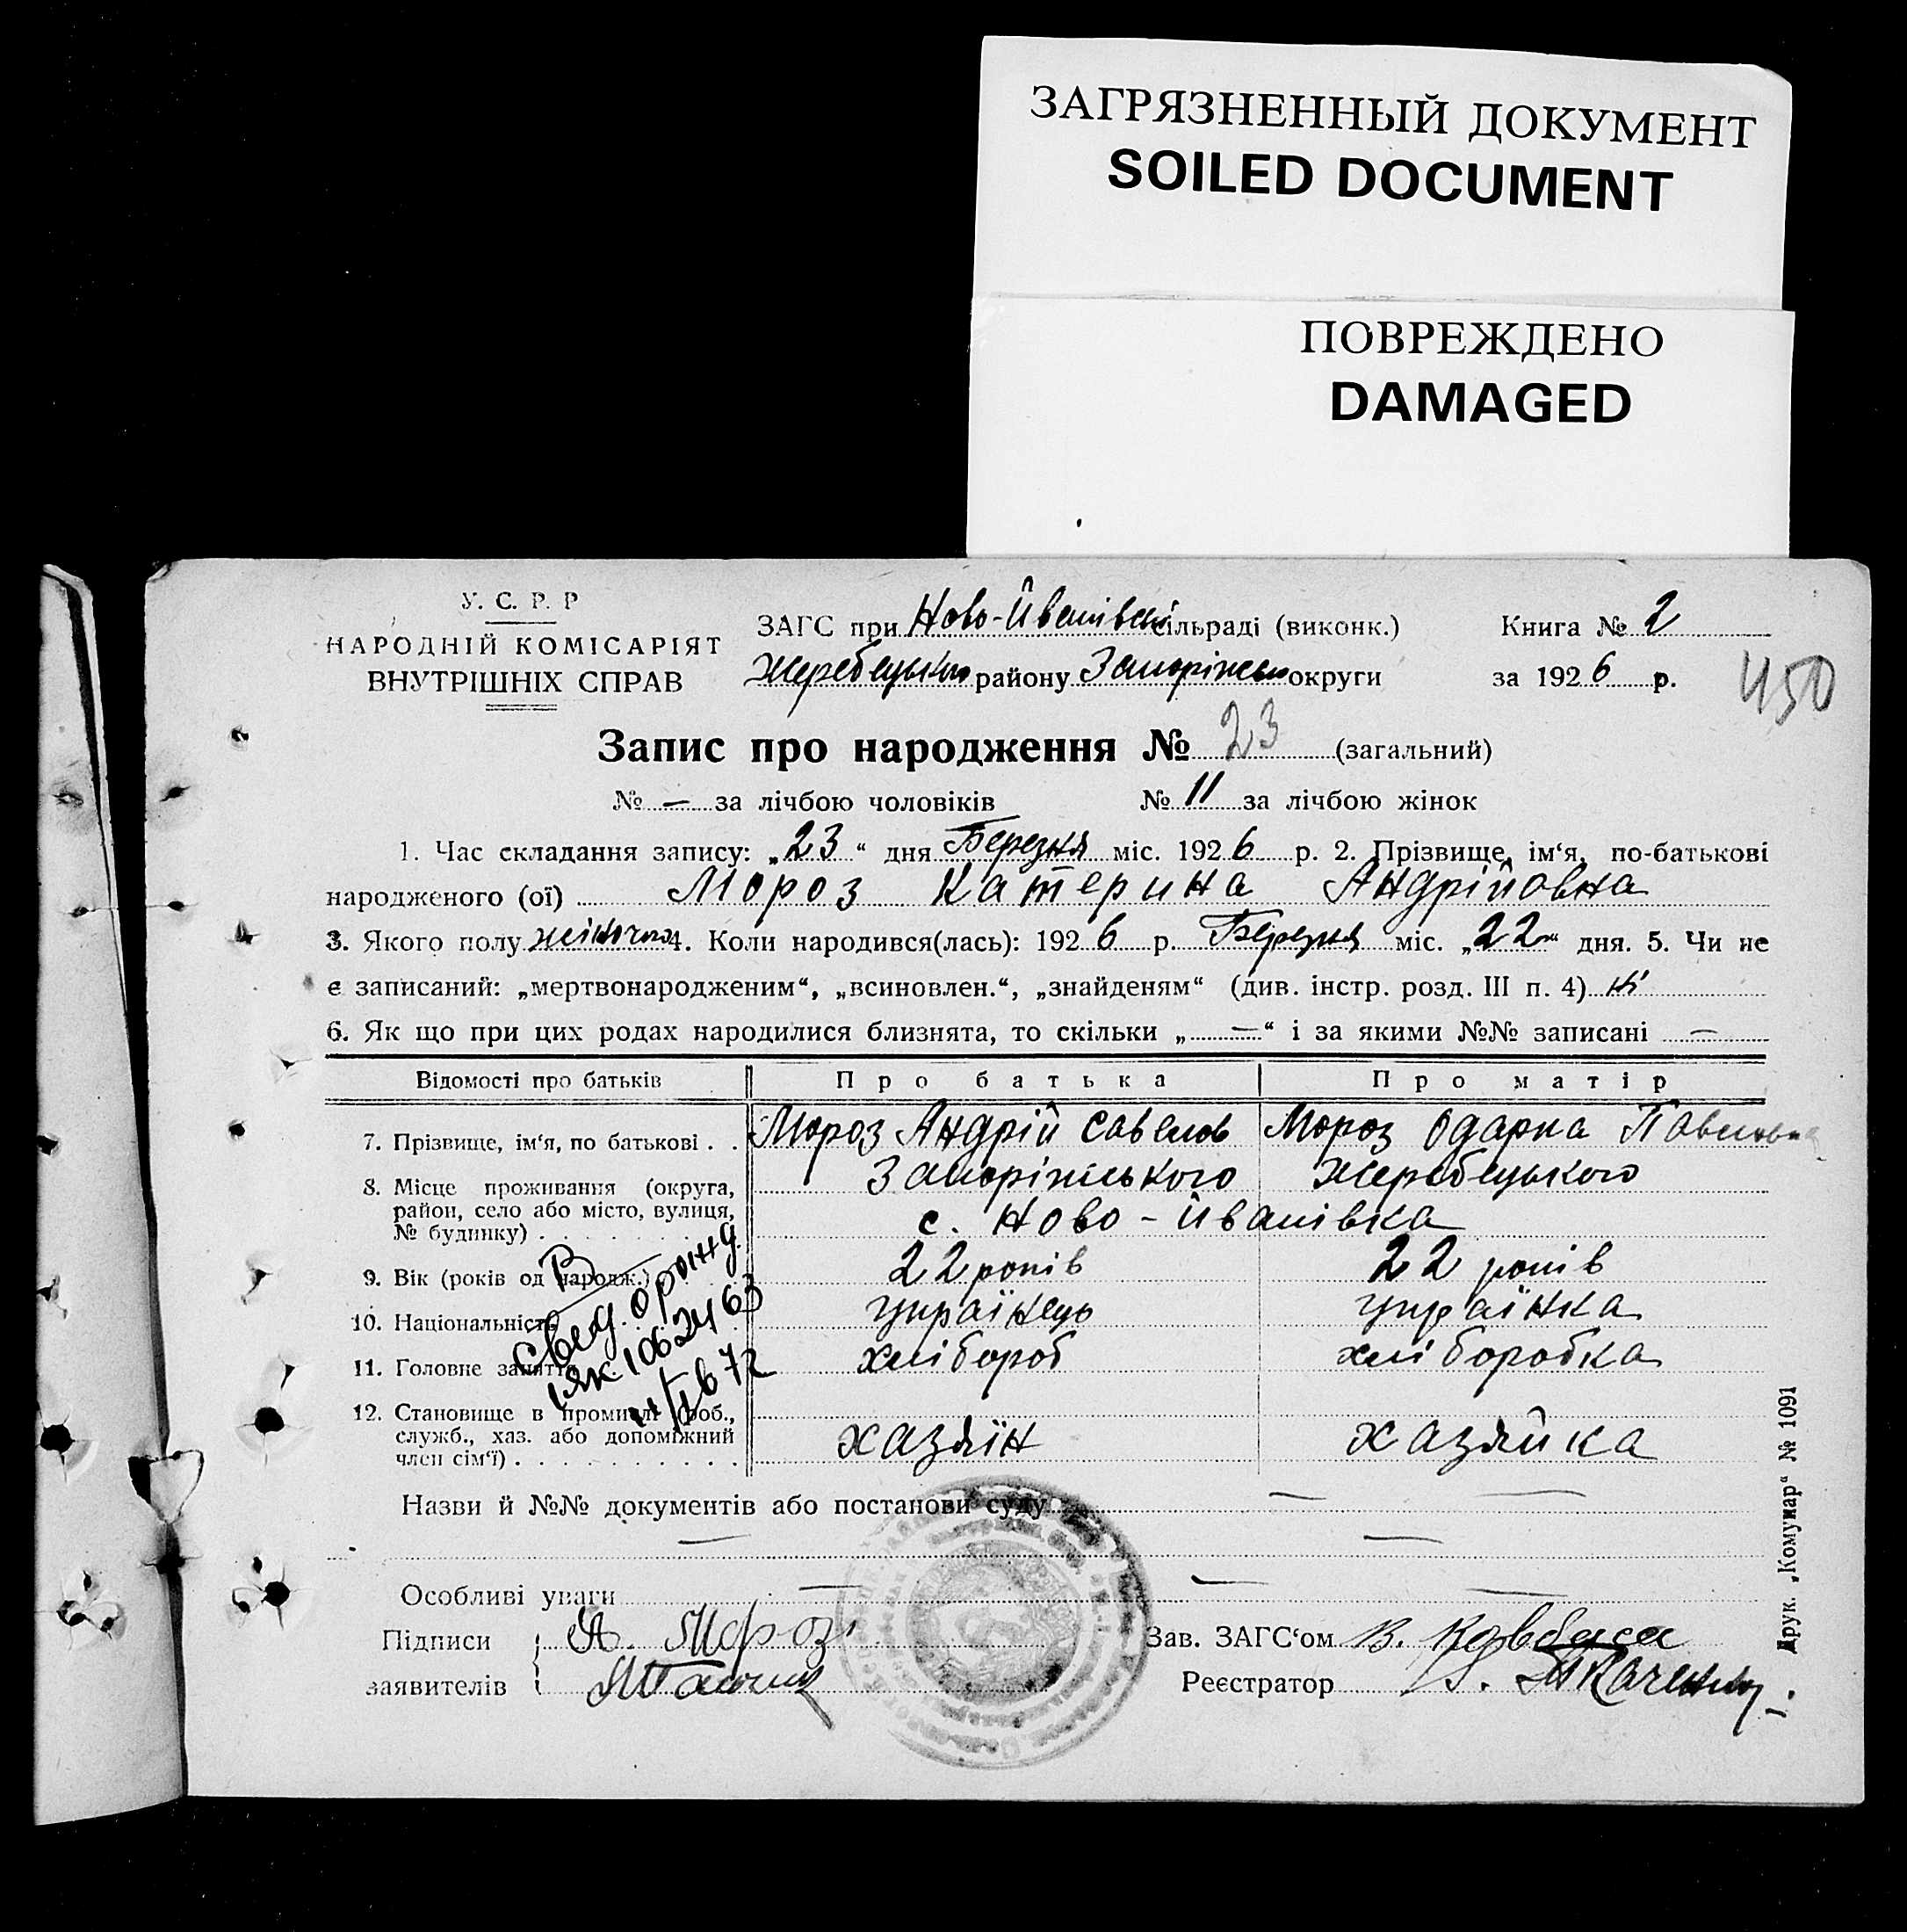 ЗАГРЯЗНЕННЫЙ ДОКУМЕНТ
SOILED DOCUMENT
ПОВРЕЖДЕНО
DAMAGED
У. С. Р. Р
НАРОДНІЙ КОМІСАРІЯТ
ВНУТРІШНІХ СПРАВ
ЗАГС при Ново-Йванівській сільраді (виконк.) Книга № 2
Жеребецького району Запоріжської округи за 1926 р.
450
Запис про народження № 23 (загальний)
№ — за лічбою чоловіків № 11 за лічбою жінок
1. Час складання запису: „23“ дня Березня міс. 1926 р. 2. Прізвище, ім‘я, по-батькові
народженого (ої) Мороз Катерина Андрійовна
3. Якого полу жіночого 4. Коли народився(лась): 1926 р. Березня міс. „22“ дня. 5. Чи не
є записаний: „мертвонародженим“, „всиновлен.“, „знайденям“ (див. інстр. розд. III п. 4) ні
6. Як що при цих родах народилися близнята, то скільки „—“ і за якими №№ записані —
Відомості про батьків Про батька Про матір
7. Прізвище, ім‘я, по батькові . . Мороз Андрій Савелов Мороз Одарка Павловна
8. Місце проживання (округа, район, село або місто, вулиця, № будинку) Запоріжського Жеребецького
с. Ново-Йванівка
9. Вік (років од народж.) 22 років 22 років
10. Національність українець українка
11. Головне заняття хлібороб хліборобка
12. Становище в промислі (роб., служб., хаз. або допоміжний член сім‘ї) хазяїн хазяйка
В
І ЯК 1062463
Назви й №№ документів або постанови суду — —
— —
Особливі уваги — — —
Підписи А. Мороз Зав. ЗАГС‘ом В. Ковбаса
заявителів Реєстратор Ткаченко
Друк. „Комунар“ № 1091